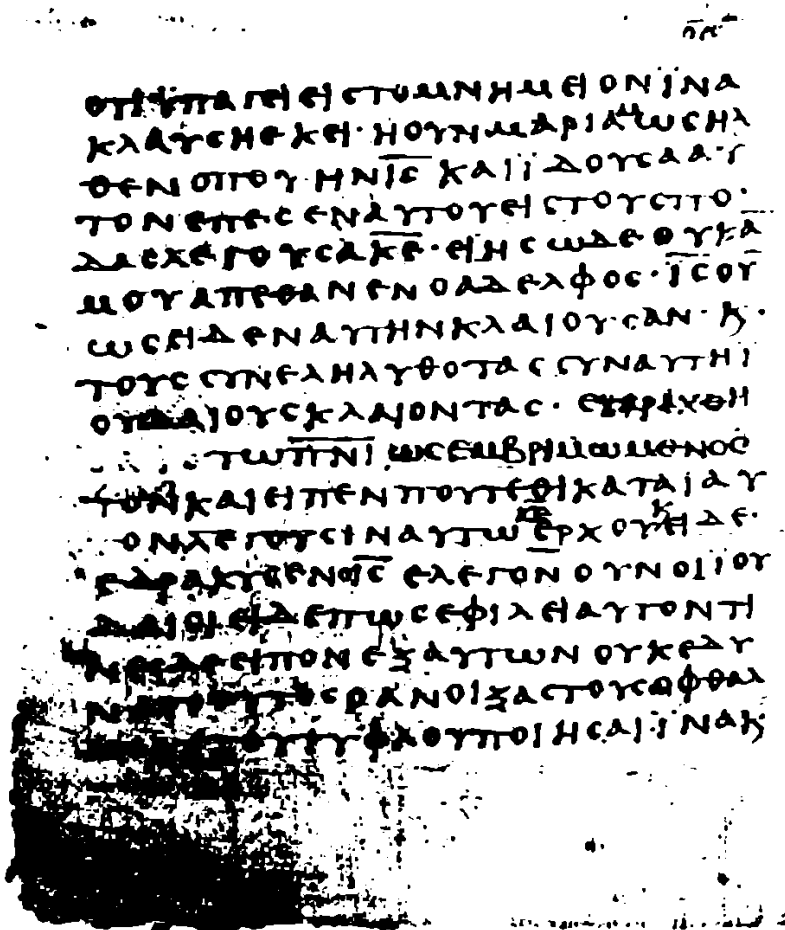 οτι ϋπαγει εις το μνημειον ϊνα
κλαυση εκει· η ουν μαριαμ ως ηλ
θεν οπου ην ι̅ς̅ και ϊδουσα α·υ
τον επεσεν αυτου εις τους πο·
δας λεγουσα κ̅ε̅· ει ης ωδε ουκ α̅
μου απεθανεν ο αδελφος· ι̅ς̅ ου̅
ως ειδεν αυτην κλαιουσαν· κ·
τους συνεληλυθοτας συν αυτη ϊ
ουδαιους κλαιοντας· εταραχθη
τω π̅ν̅ι̅ ως εμβριμωμενος
και ειπεν που τεθικαται αυ
τον λεγουσιν αυτω κ̅ε̅ ερχου κ ειδε·
εδακρυσεν ο ι̅ς̅ ελεγον ουν οι ϊου
δαιοι ειδε πως εφιλει αυτον τι
νες δε ειπον εξ αυτων ουκ εδυ
νατο ουτος ο ανοιξας τους οφθαλ
του τυφλου ποιησαι· ϊνα κ